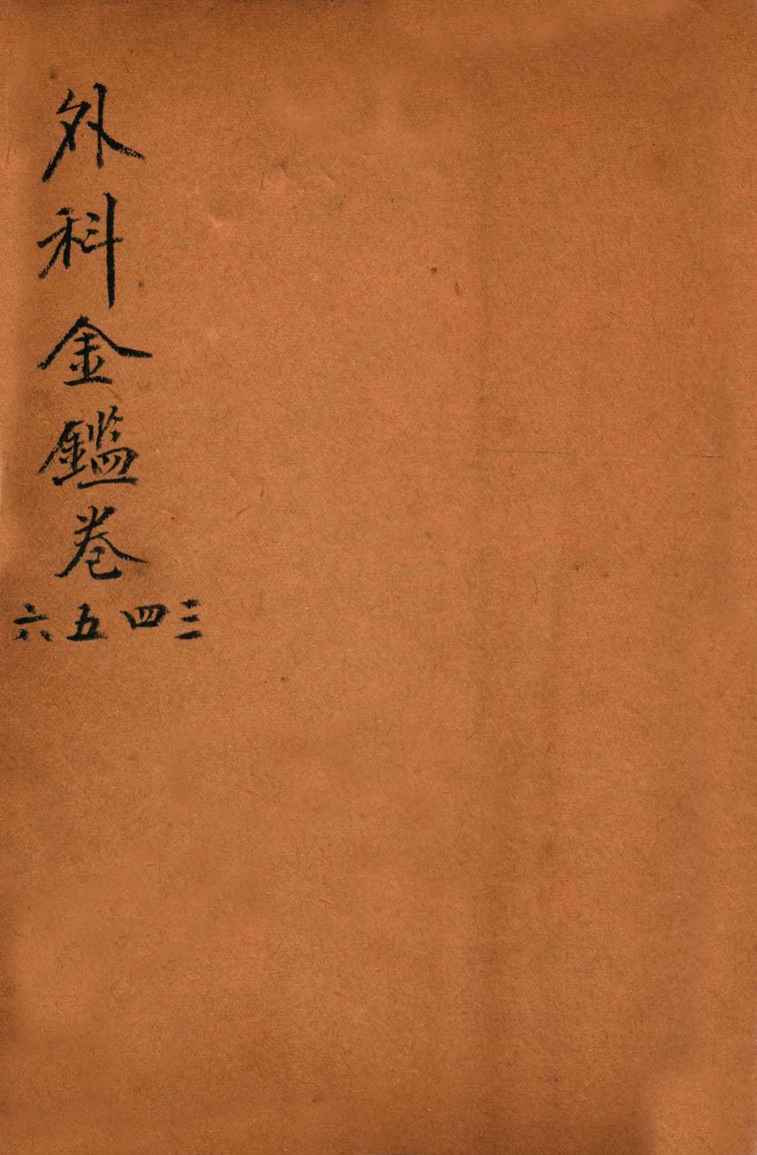 外科金鑑卷
三四五六